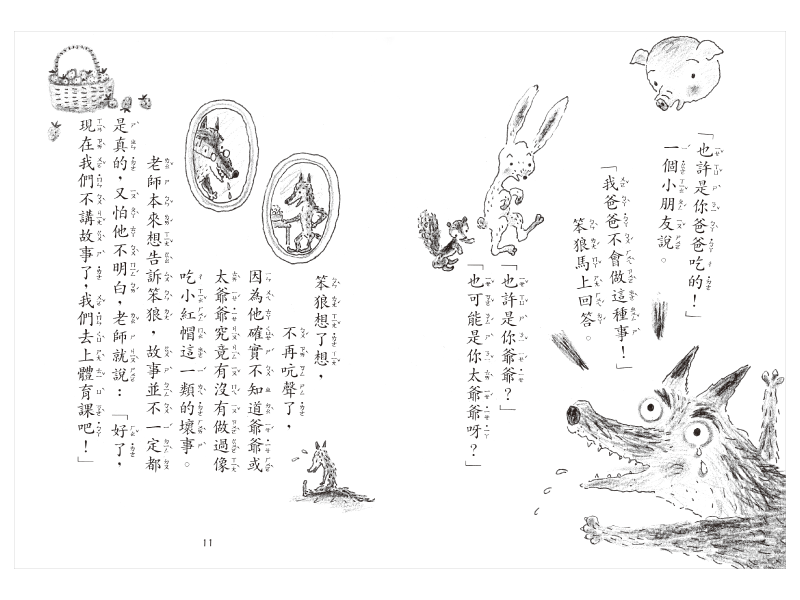 「也許是你爸爸吃的！」
一個小朋友說。
「我爸爸不會做這種事！」
笨狼馬上回答。
「也許是你爺爺？」
「也可能是你太爺爺呀？」
笨狼想了想，
不再吭聲了，
因為他確實不知道爺爺或
太爺爺究竟有沒有做過像
吃小紅帽這一類的壞事。
老師本來想告訴笨狼，故事並不一定都
是真的，又怕他不明白，老師就說：「好了，
現在我們不講故事了，我們去上體育課吧！」
11